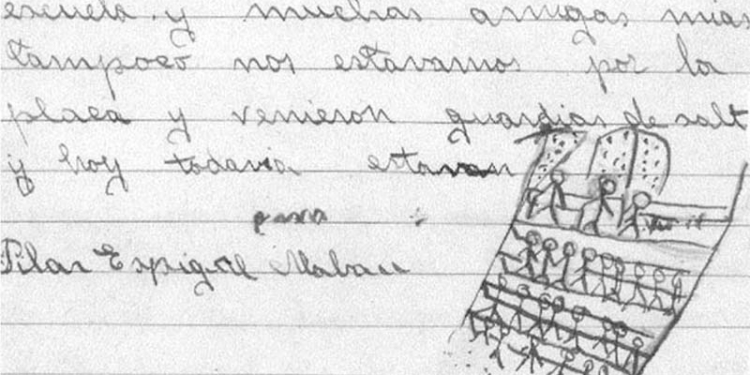 escuela y muchas amigas mias
tampoco nos estavamos por la
plaea y venieron guardias de salt
y hoy todavia estavan
para
Pilar Espigol